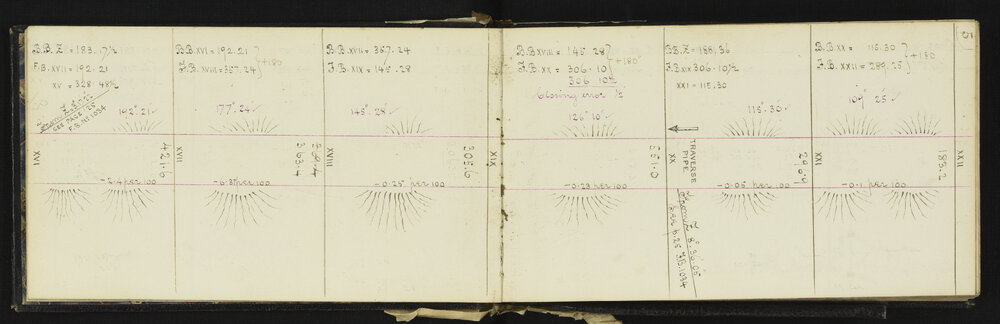 B.B. Z = 183.17½
F.B. XVII = 192.21
XV = 328.48½
SEE PAGE 25
F.B. No 1034
192°.21'
XVI
421.6
-2.4 per 100
B.B. XVI = 192.21
F.B. XVIII = 357.24
+180
177°.24'
XVII
363.4
-6.3 per 100
B.B. XVII = 357.24
F.B. XIX = 145.28
145°.28'
XVIII
305.6
-0.25 per 100
XIX
B.B. XVIII = 145.28
F.B. XX = 306.10
+180°
306 10½
Closing error ½
126° 10'
551.0
-0.23 per 100
B.B. Z = 188.36
F.B. XIX 306.10½
XXI = 115.30
115°.30'
TRAVERSE
PIPE
XX
-0.05 per 100
B.B. XX = 115.30
F.B. XXII = 289.25
+180
109° 25'
XXI
183.2
-0.1 per 100
XXII